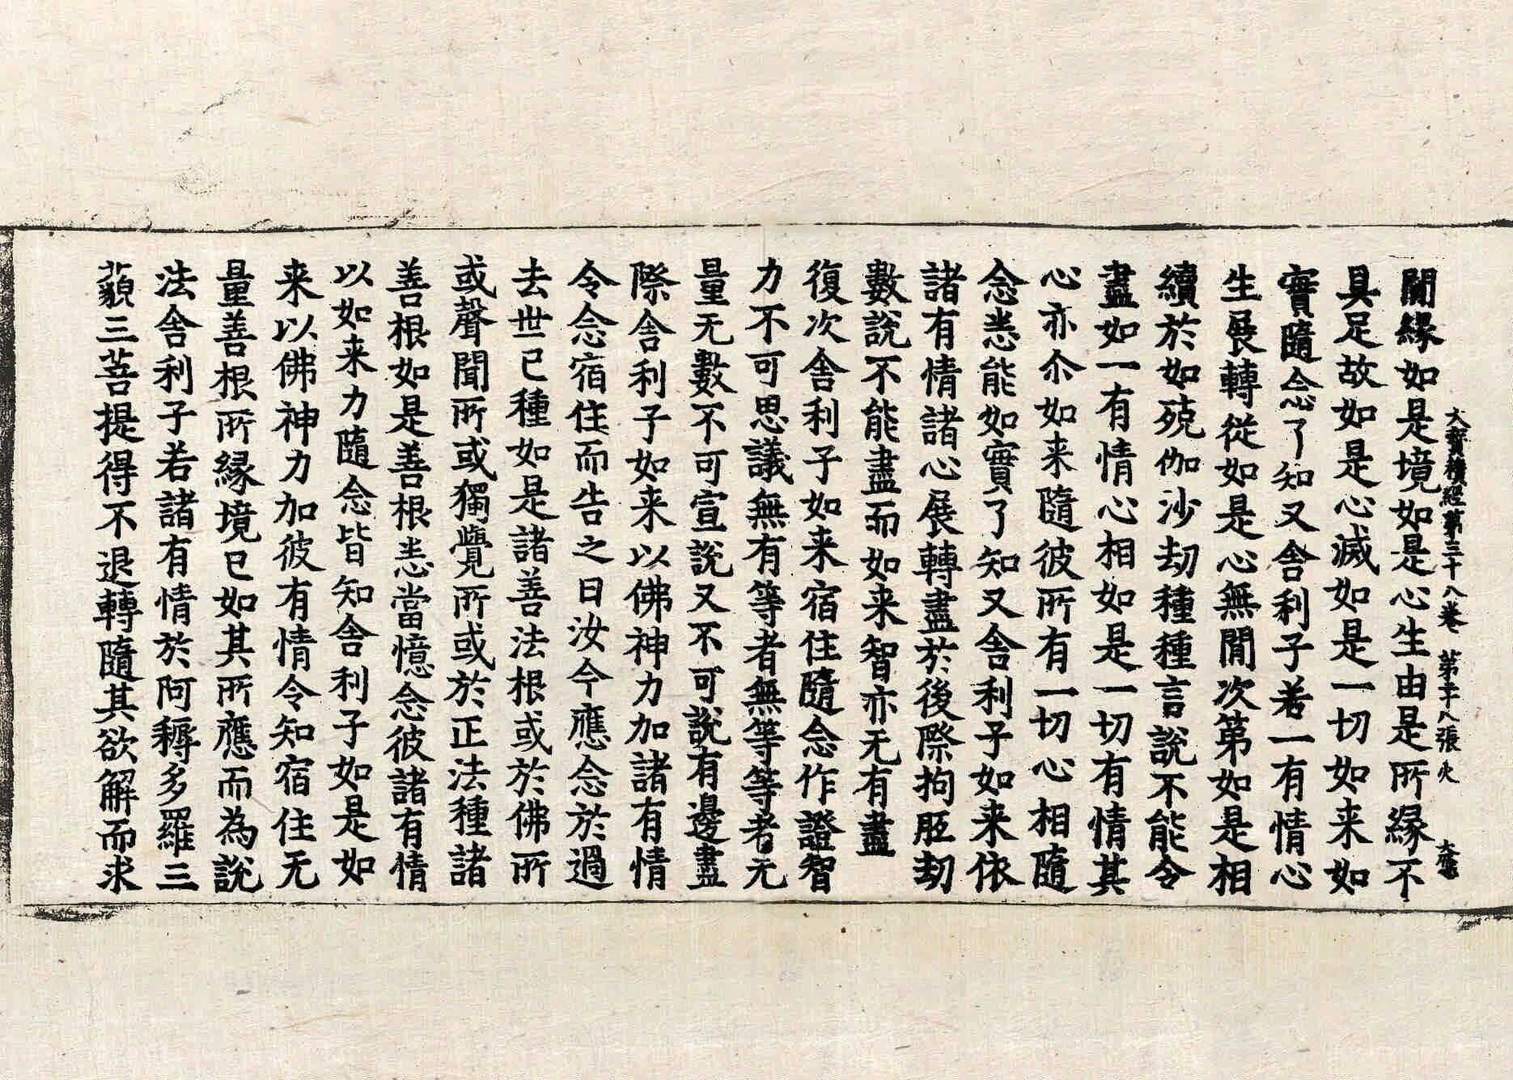 大寶積經第三十八卷　第十八張　火
闕緣如是境如是心生由是所緣不
具足故如是心滅如是一切如来如
實隨念了知又舍利子若一有情心
生展轉從如是心無間次第如是相
續於如殑伽沙劫種種言說不能令
盡如一有情心相如是一切有情其
心亦尒如来隨彼所有一切心相隨
念悉能如實了知又舍利子如来依
諸有情諸心展轉盡於後際拘胝劫
數說不能盡而如来智亦无有盡
復次舍利子如来宿住隨念作證智
力不可思議無有等者無等等者无
量无數不可宣說又不可說有邊盡
際舍利子如来以佛神力加諸有情
令念宿住而告之曰汝今應念於過
去世已種如是諸善法根或於佛所
或聲聞所或獨覺所或於正法種諸
善根如是善根悉當憶念彼諸有情
以如来力隨念皆知舍利子如是如
来以佛神力加彼有情令知宿住无
量善根所緣境已如其所應而為說
法舍利子若諸有情於阿耨多羅三
藐三菩提得不退轉隨其欲解而求